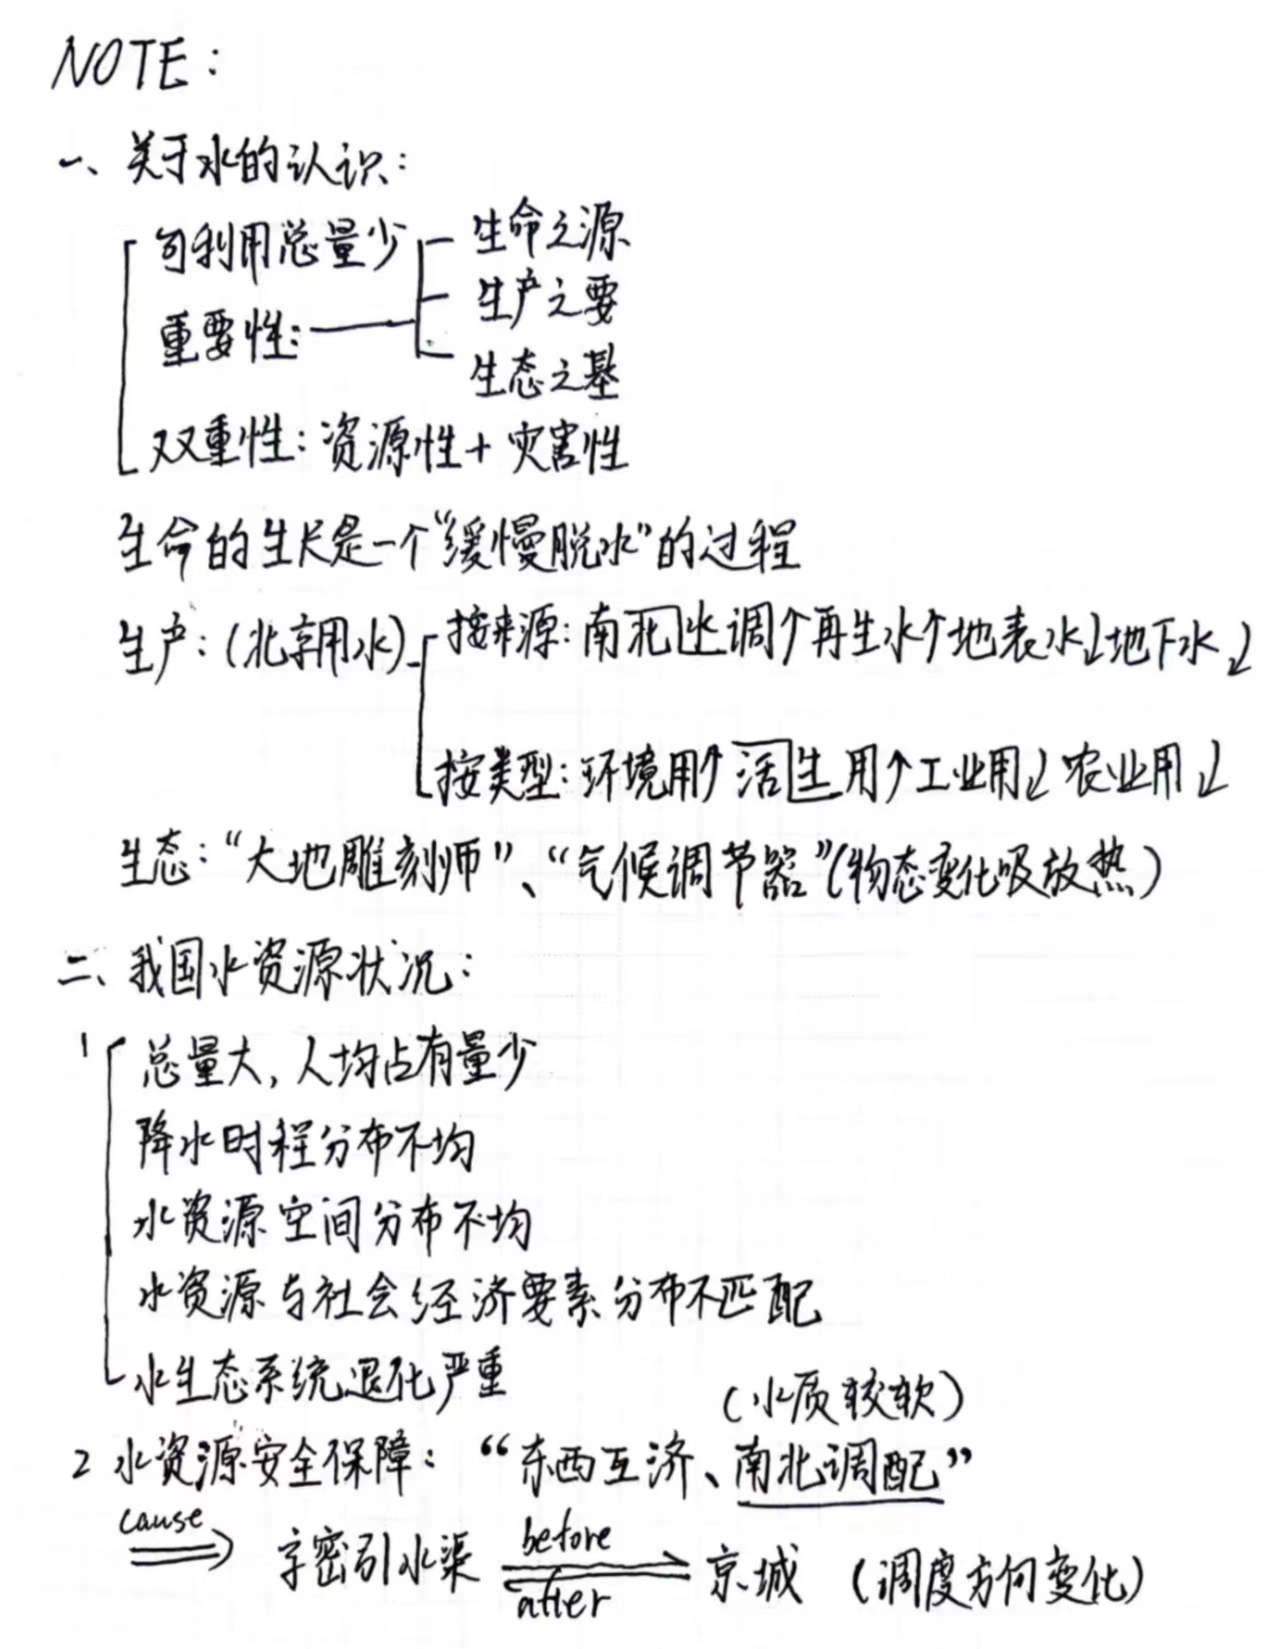 NOTE:
一、关于水的认识:
可利用总量少
生命之源
生产之要
重要性:
生态之基
双重性:资源性+灾害性
生命的生长是一个“缓慢脱水”的过程
生产:(北京用水)
按来源:南北水调↑再生水↑地表水↓地下水↓
按类型:环境用↑活生用↑工业用↓农业用↓
生态:“大地雕刻师”、“气候调节器”(物态变化吸放热)
二、我国水资源状况:
1 总量大,人均占有量少
降水时程分布不均
水资源空间分布不均
水资源与社会经济要素分布不匹配
水生态系统退化严重
(水质较软)
2 水资源安全保障:“东西互济、南北调配”
cause
before
⇒ 京密引水渠 京城 (调度方向变化)
after